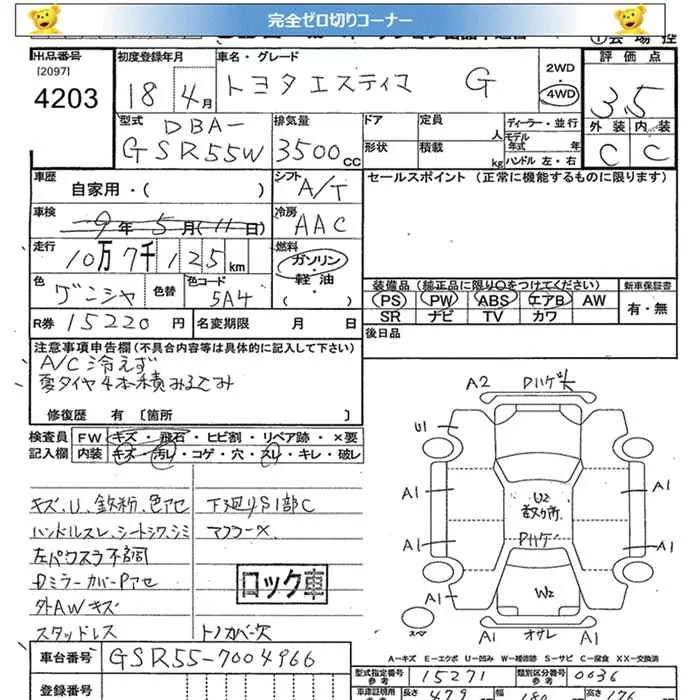 完全ゼロ切りコーナー
出品番号
[2097]
4203
初度登録年月
18 4月
車名・グレード
トヨタ エスティマ G
2WD
4WD
評価点
3.5
外装 内装
C C
型式
DBA-
GSR55W
排気量
3500cc
ドア
形状
定員
人
積載
kg
ディーラー・並行
モデル
年式 年
ハンドル 左・右
車歴
自家用・( )
シフト
A/T
セールスポイント (正常に機能するものに限ります)
車検
9年 5月 (11日)
冷房
AAC
走行
10万7千125km
燃料
ガソリン・
軽油・
( )
色
グンシヤ
色替
色コード
5A4
R券 15220円
名変期限 月 日
装備品 (純正品に限り○をつけてください)
新車保証書
PS PW ABS エアB AW
SR ナビ TV カワ
有・無
後日品
注意事項申告欄 (不具合内容等は具体的に記入して下さい)
A/C 冷えず
夏タイヤ4本積みるこみ
修復歴 有 〔箇所 〕
検査員
記入欄
FW キズ・飛石・ヒビ割・リペア跡・×要
内装 キズ・汚レ・コゲ・穴・スレ・キレ・破レ
キズ、U、鉄粉、色アセ
下廻りS1部C
ハンドルスレ、シートシワ、シミ
マフラーX
左パワスラ不調
DミラーカバーPアセ
外AWキズ
スタッドレス
トノカバー欠
ロック車
A2
U1
A1
A1
A1
A1
A1
U2
数ヶ所
Pハゲ
W2
A1
A1
A1
スペ
オサレ
A…キズ E…エクボ U…凹み W…補修跡 S…サビ C…腐食 X X X…交換済
車台番号
GSR55-7004966
登録番号
型式指定番号
参考
15271
類別区分番号
参考
0036
長さ
479
幅
180
高さ
176